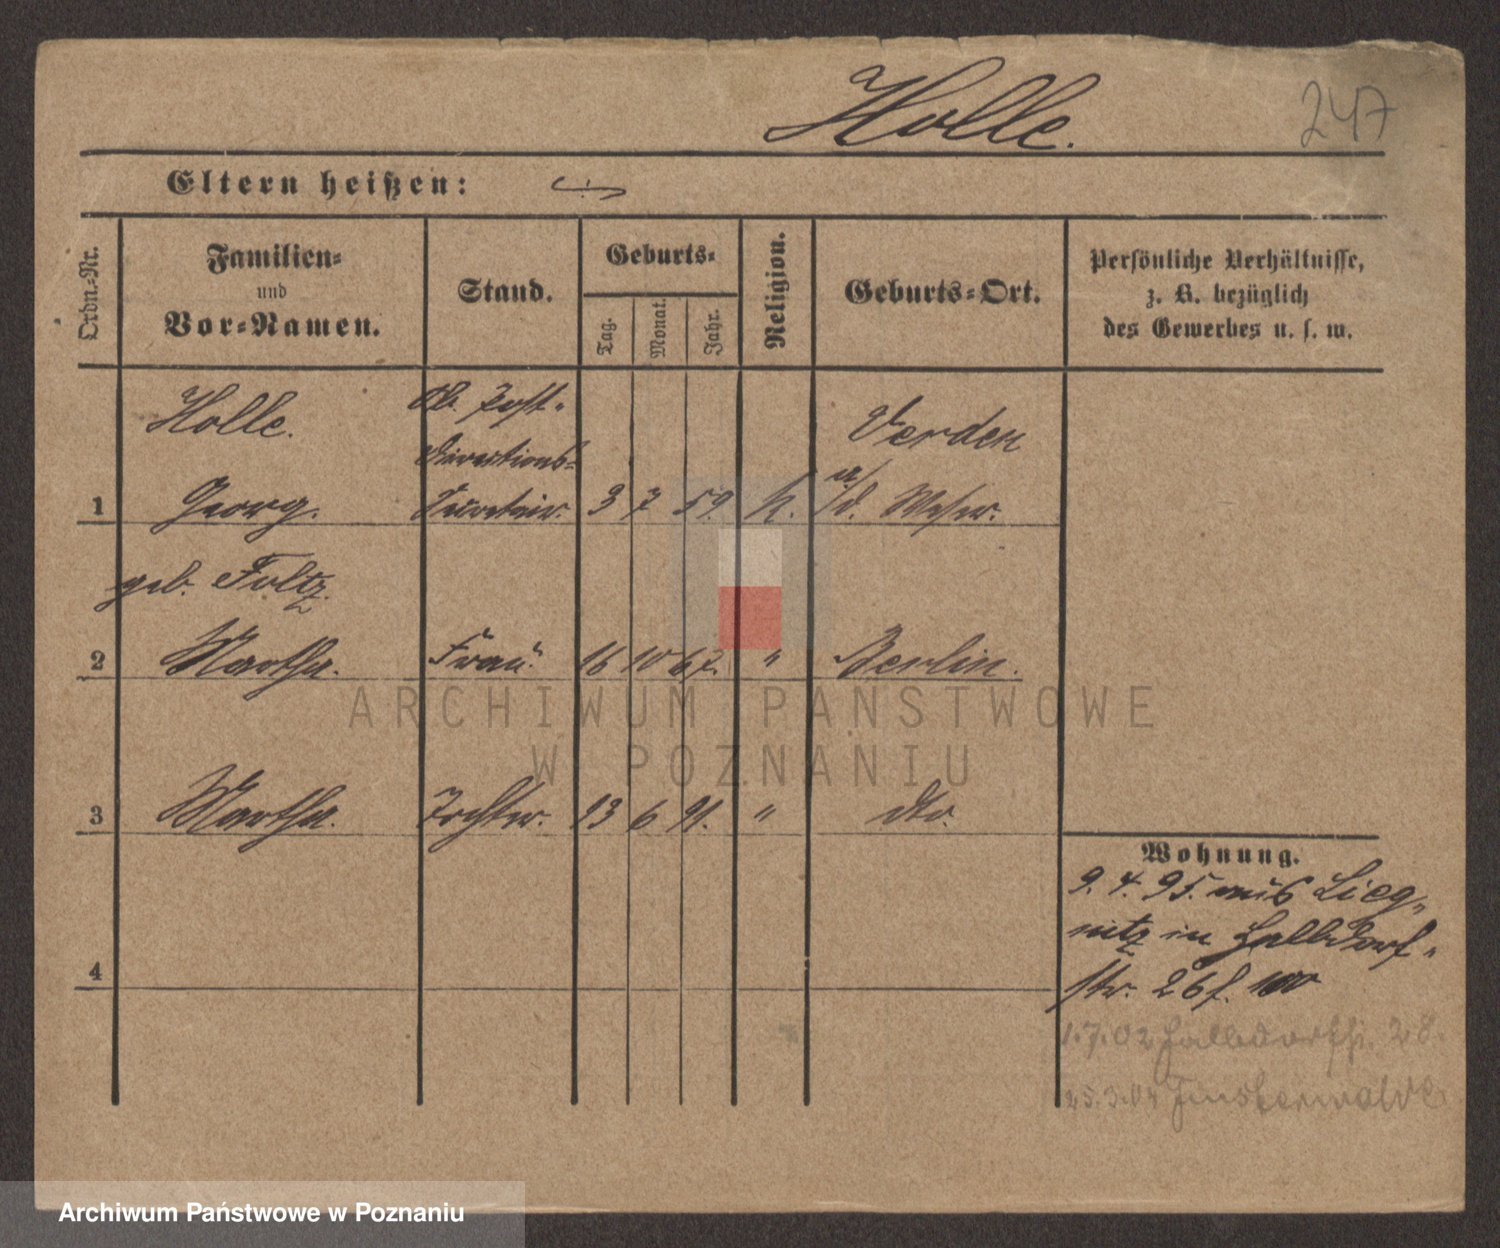 Holle.
247
Eltern heißen:
Ordn.-Nr.
Familien-
und
Vor-Namen.
Stand.
Geburts-
Tag.
Monat.
Jahr.
Religion.
Geburts-Ort.
Persönliche Verhältnisse,
z. B. bezüglich
des Gewerbes u. s. w.
Holle.
Ob. Post-
Directions-
Verden
1 Georg. Secretair. 3 7 59. k. a/d. Weser.
geb. Foltz.
2 Martha. Frau. 16 10 67. " Berlin.
ARCHIWUM PAŃSTWOWE
W POZNANIU
3 Martha. Tochter. 13 6 91. " dto.
Wohnung.
9. 4. 95. aus Lieg-
nitz in Halbdorf-
4
str. 26 f.
1.7.02 Halbdorfstr. 28.
25.3.04 Finsterwalde
Archiwum Państwowe w Poznaniu